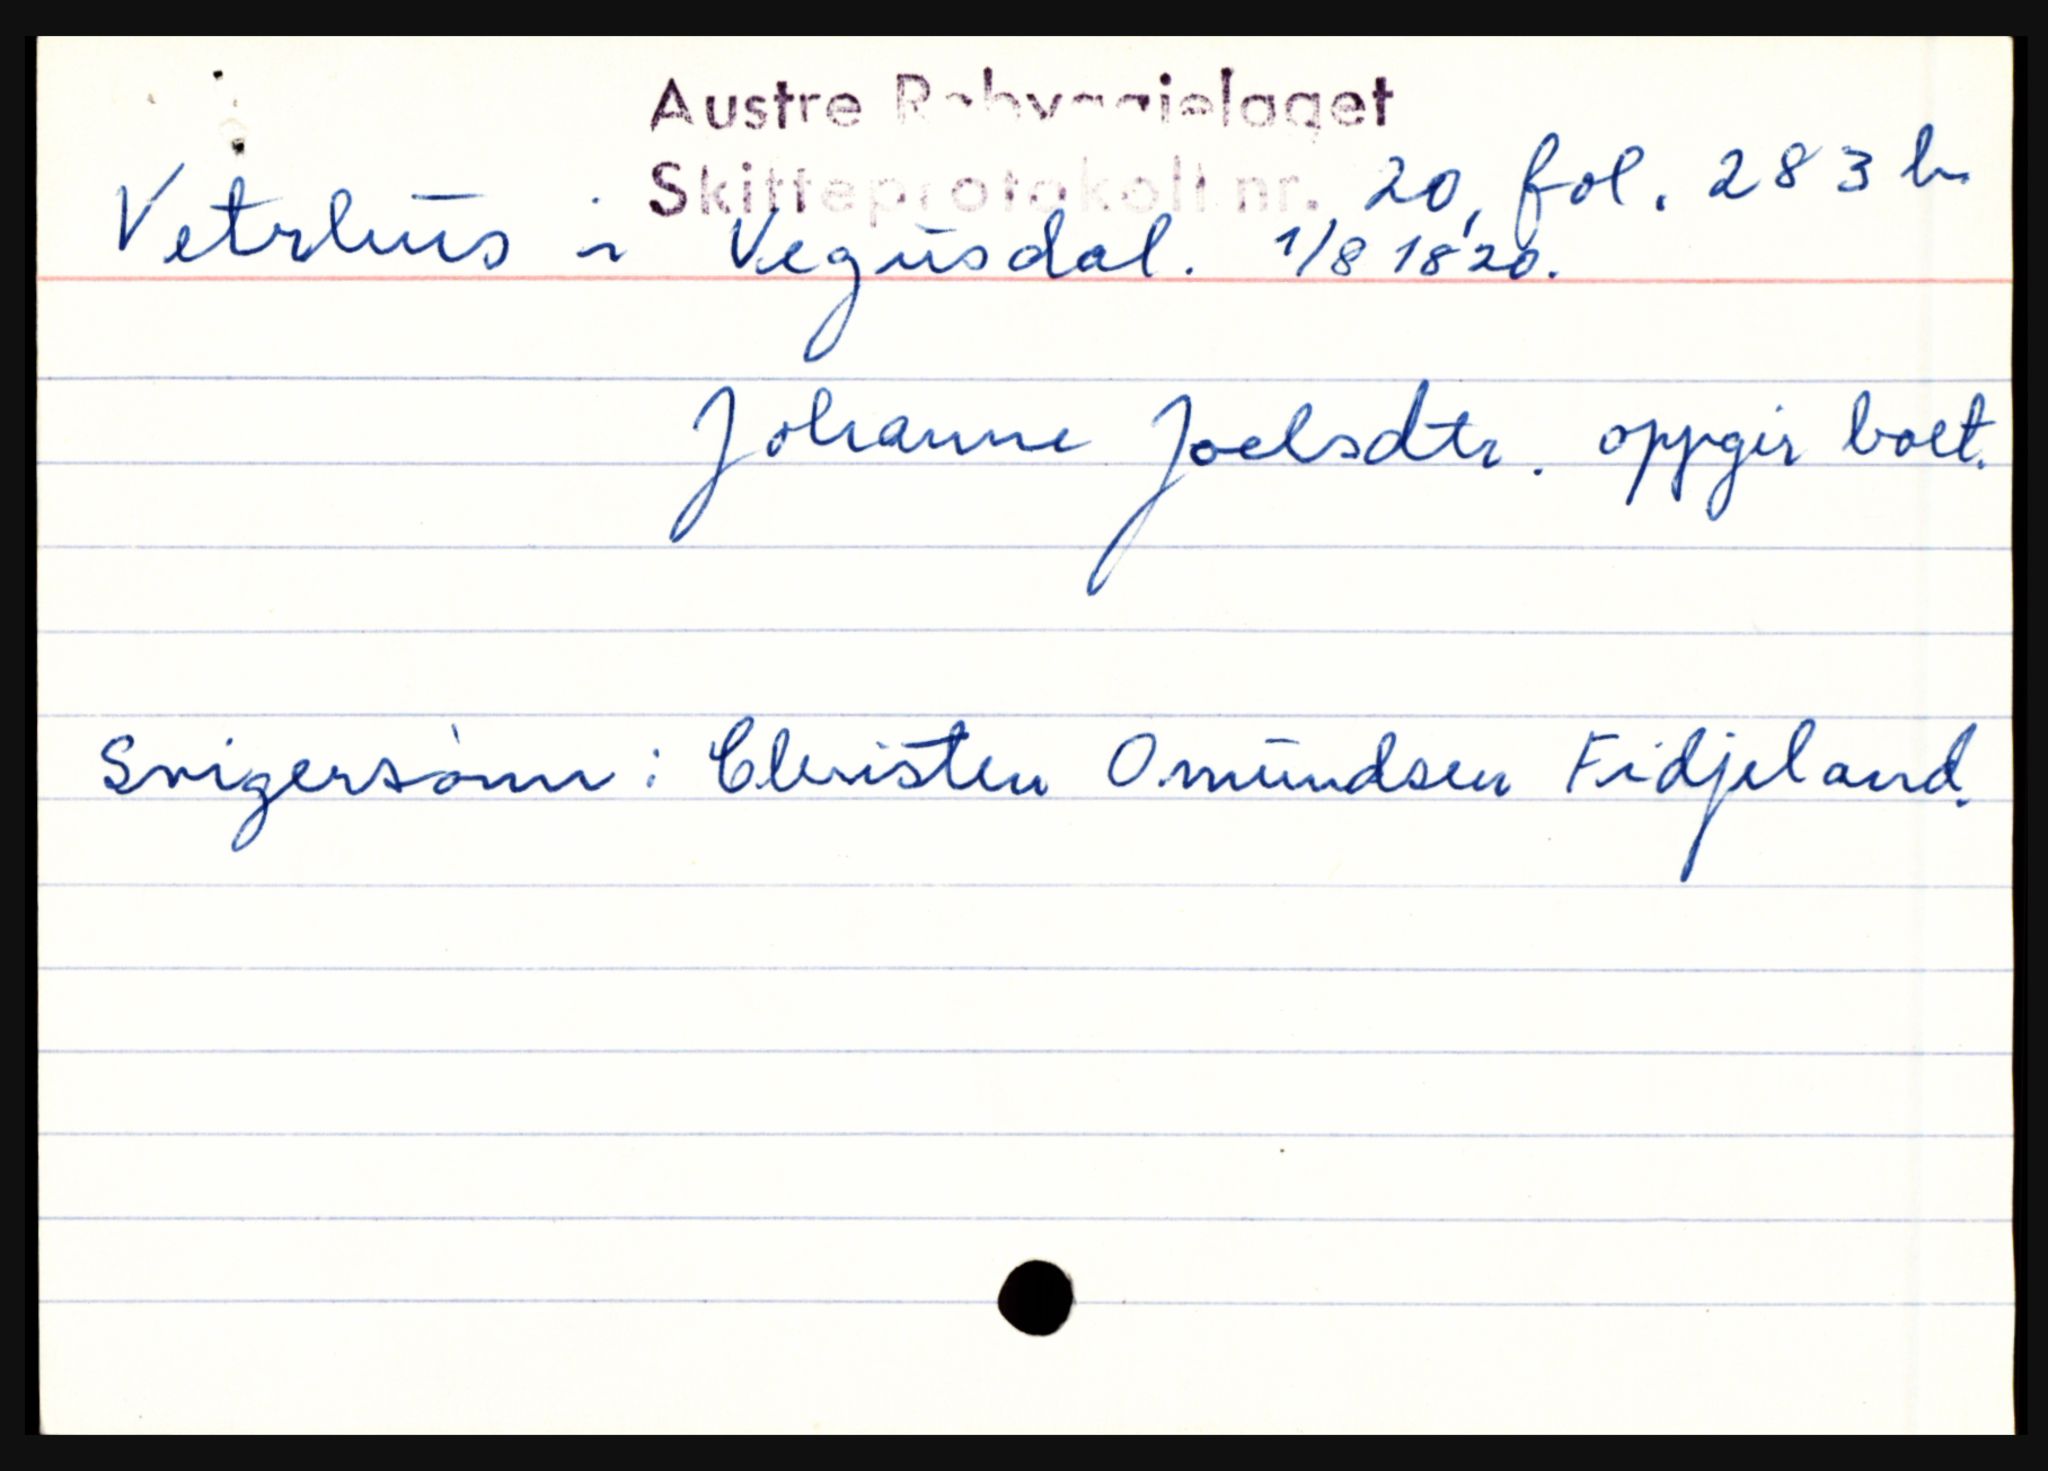 Austre Rabyggjelaget
Skifteprotokoll nr. 20, fol. 283 b.
Vetrhus i Vegusdal. 1/8 1820.
Johanne Joelsdtr. oppgir boet.
Svigersønn: Christen Omundsen Fidjeland.